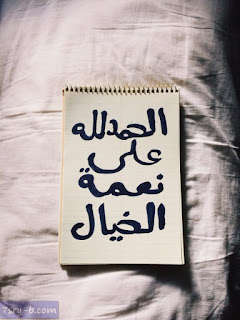 الحمدلله
على
نعمة
الخيال
7sry-b.com